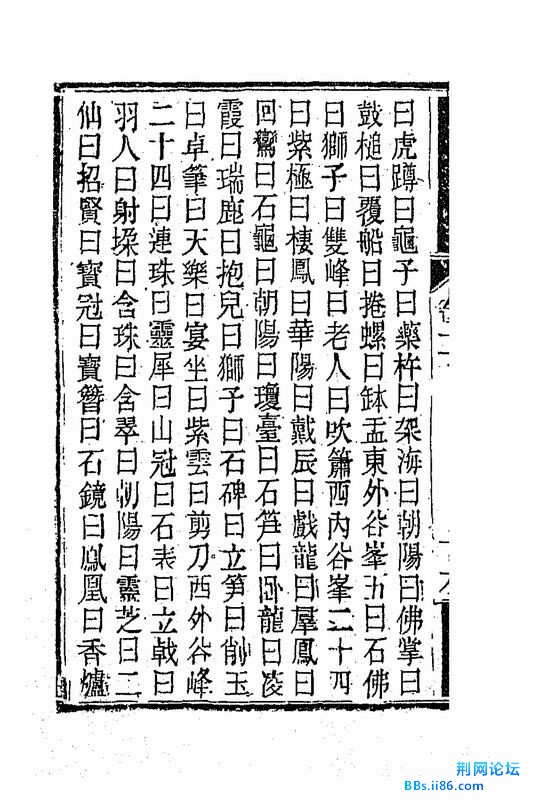 曰虎蹲曰龜子曰藥杵曰架海曰朝陽曰佛掌曰
鼓槌曰覆船曰捲螺曰缽盂東外谷峯五曰石佛
曰獅子曰雙峰曰老人曰吹簫西內谷峯二十四
曰紫極曰棲鳳曰華陽曰戴辰曰戲龍曰羣鳳曰
回鸞曰石龜曰朝陽曰瓊臺曰石筍曰臥龍曰凌
霞曰瑞鹿曰抱兒曰獅子曰石碑曰立笋曰削玉
曰卓筆曰天樂曰宴坐曰紫雲曰剪刀西外谷峰
二十四曰連珠曰靈犀曰山冠曰石表曰立戟曰
羽人曰射垜曰含珠曰含翠曰朝陽曰靈芝曰二
仙曰招賢曰寶冠曰寶簪曰石鏡曰鳳凰曰香爐
荆网论坛
BBs.ii86.com